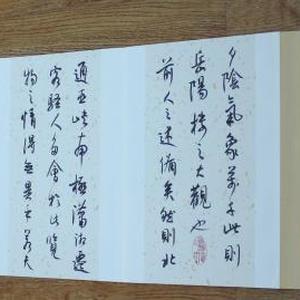 夕陰氣象萬千此則
岳陽樓之大觀也
前人之述備矣然則北
通巫峽南極瀟湘遷
客騷人多會於此覽
物之情得無異乎若夫